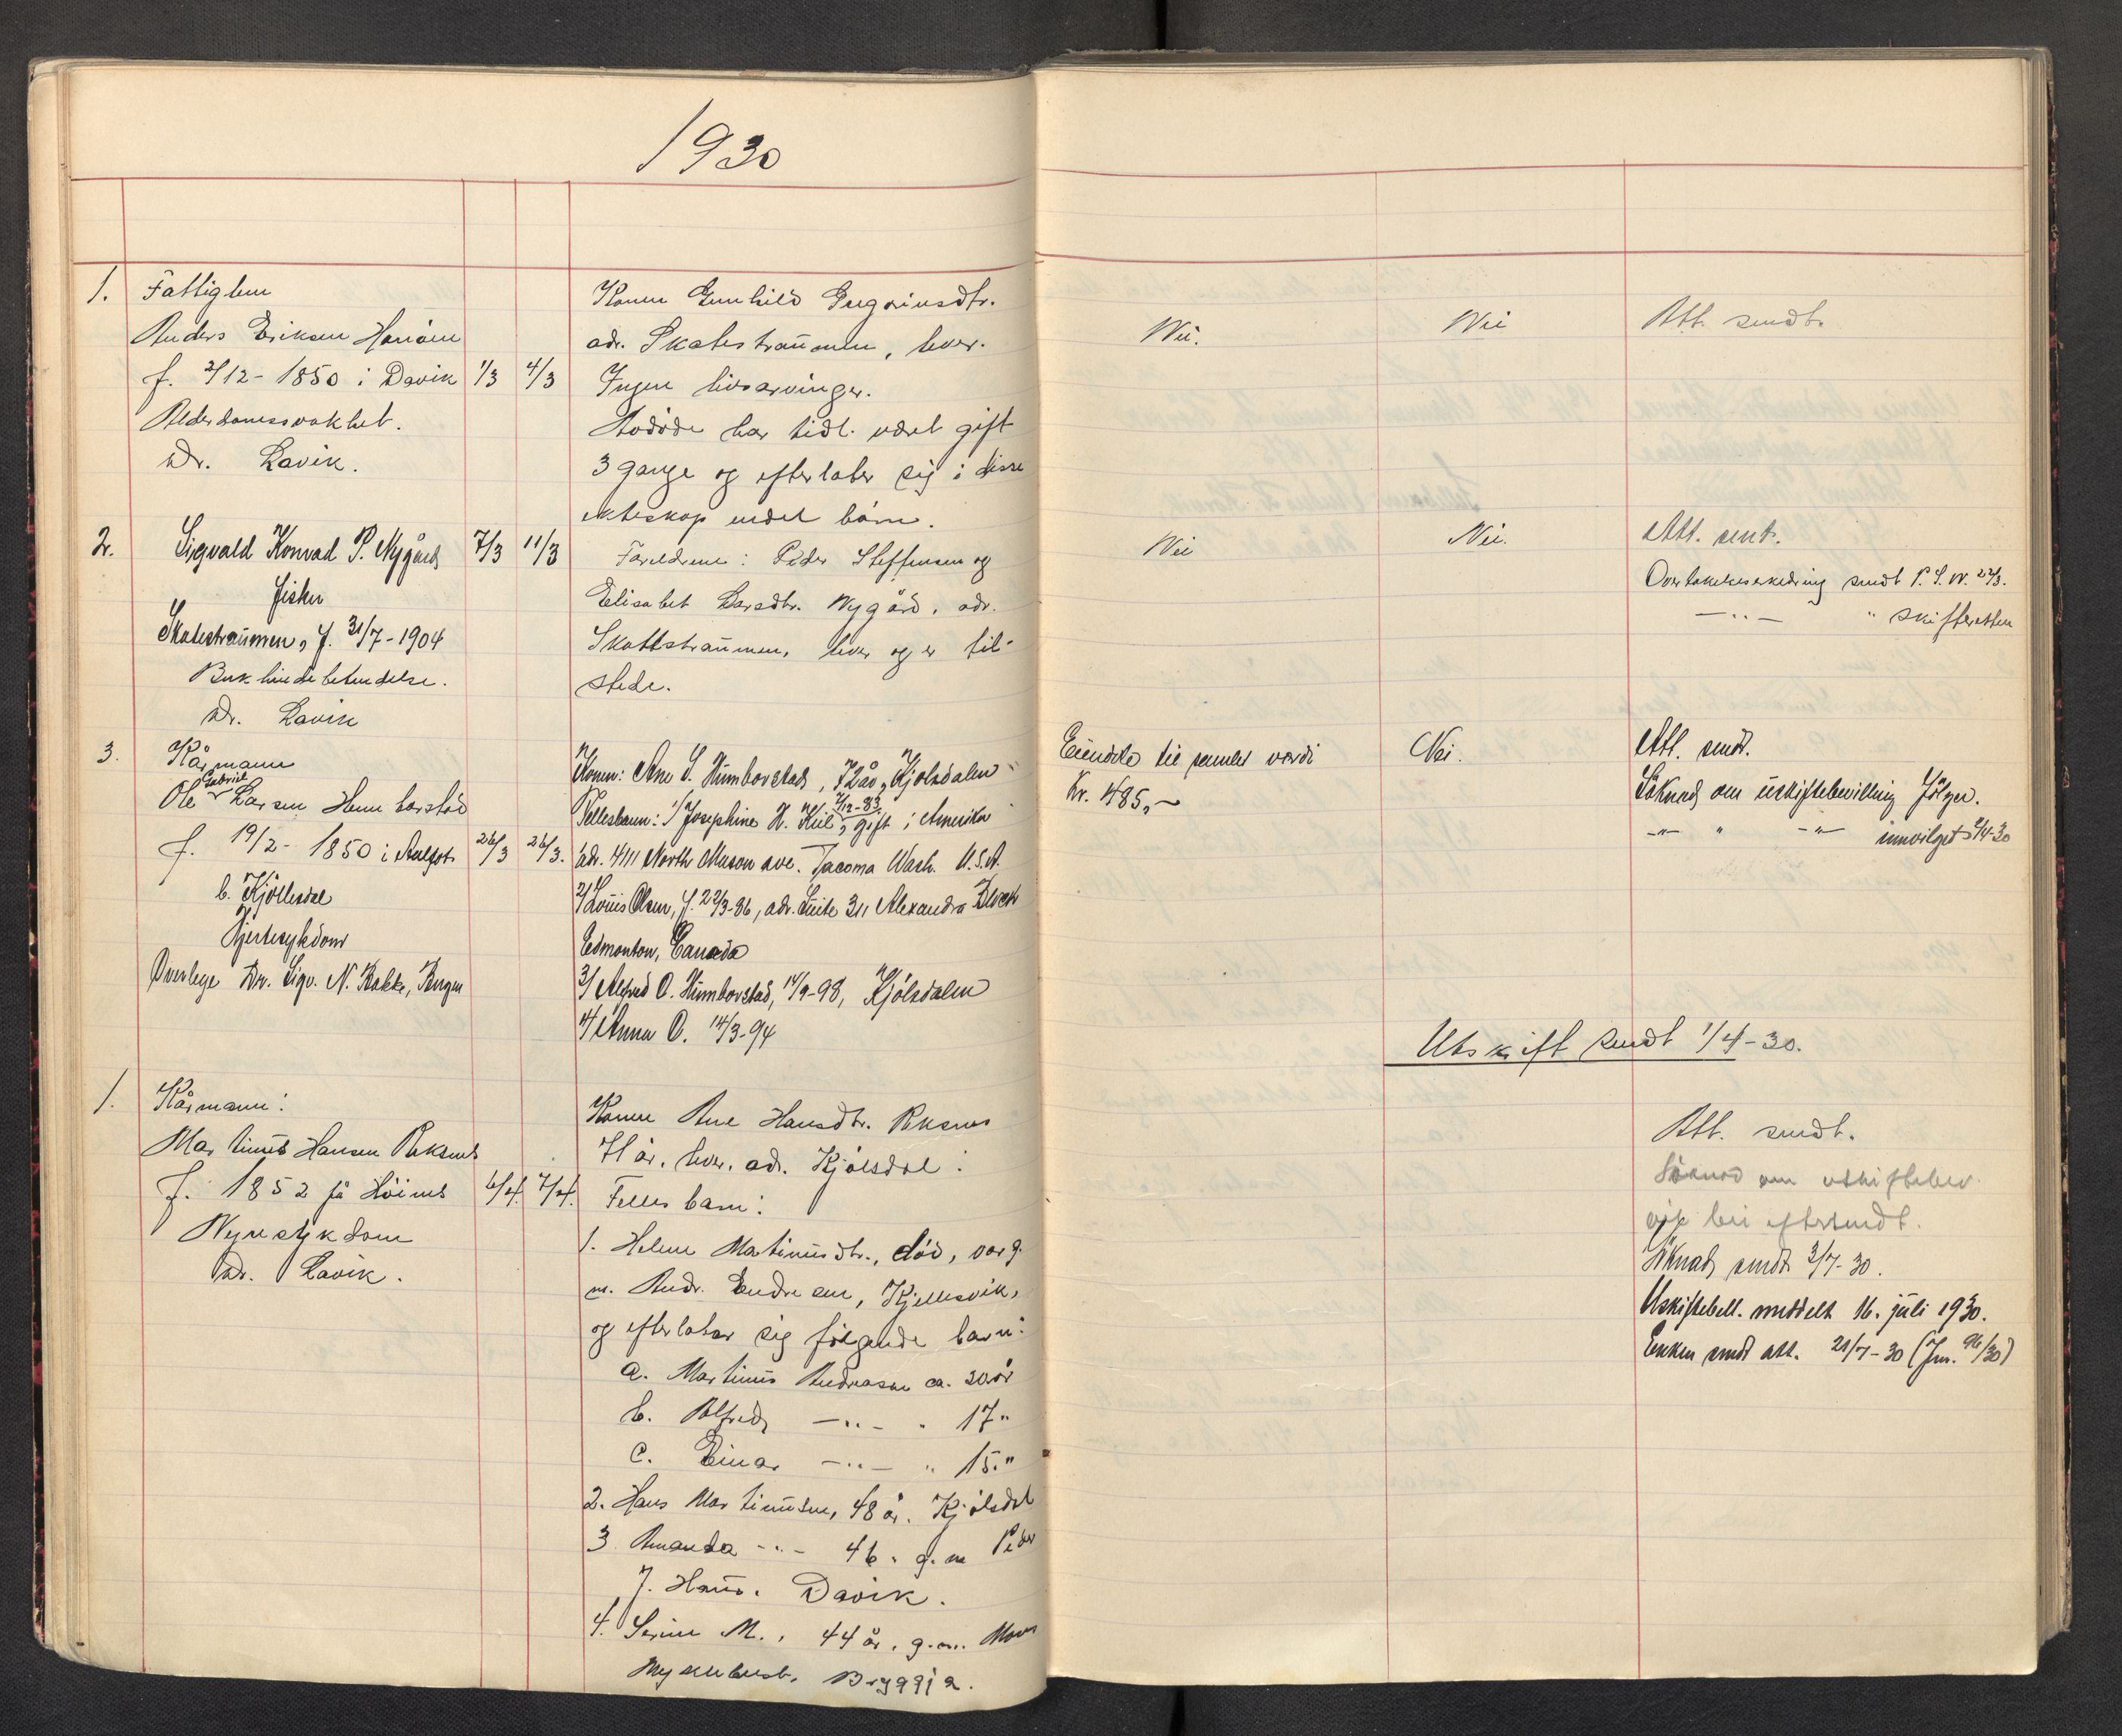 1930
1. Fattiglem
Anders Eriksen
f. 2/12 - 1850 i Davik 1/3 4/3
Alderdomssvakhet.
Dr. Lavik.
Konen Gunhild Gregoriusdtr.
adr. Skatestraumen, lever.
Ingen livsarvinger.
Avdøde har tidl. været gift
3 gange og efterlater sig i disse
ekteskap endel barn.
Nei.
Nei
Att. sendt.
2. Sigvald Konrad P. Nygård 7/3 11/3
fisker
Skatestraumen, f. 31/7 - 1904
Bukhindebetendelse.
Dr. Lavik
Foreldrene: Peder Steffensen og
Elisabet Larsdtr. Nygård, adr.
Skatestraumen, lever og er til-
stede.
Nei
Nei.
Att. sent.
Overtakelseserkedring sendt P. S. W. 22/3.
— " — " skifteretten
3. Kårmann
Ole Gabriel Larsen Humborstad
f. 19/2 - 1850 i 26/3 26/3.
b. Kjöllesdal
Hjertesykdom
Overlege Dr. Sigv. N. Bakke, Bergen
Konen: Ane S. Humborstad, 72 år, Kjölsdalen
Fellesbarn: 1/ Josephine H. 7/12-83, gift i Amerika
adr. 4111 North Mason ave. Tacoma Wash. U.S.A.
2/ Louis Olsen, f. 22/3-86, adr. Suite 311 Alexandra Block
Edmonton, Canada
3/ Alfred O. Humborstad, 14/9-98, Kjölsdalen
4/ Anna O. 14/3-94
Eiendele til samlet værdi
Kr. 485,~
Nei.
Att. sendt.
Söknad om uskiftebevilling følger.
—"— " —"— innvilget 2/4-30
Utskift sendt 1/4-30.
1. Kårmann:
Martinus Hansen Reksnes
f. 1852 på 6/4. 7/4.
Nyresykdom
Dr. Lavik.
Konen Ane Hansdtr. Reksnes
71 år, lever, adr. Kjölsdal.
Felles barn:
1. Helene Martinusdtr., död, var g.
m. Andr. Endresen, Kjellesvik,
og efterlater sig fölgende barn:
a. Martinus Andreasen ca. 20 år
b. Alfred —"— " 17 "
c. Einar —"— " 15. "
2. Hans Martinusen, 48 år. Kjölsdal
3 Amanda -"- 46 " g. m Peder
J. Haus. Davik.
4. Serine M., 44 år, g. m. Mons
Myklebust, Bryggja.
Att. sendt.
Söknad om uskiftebev.
blir eftersendt.
Söknad sendt 3/7-30.
Uskiftebell. meddelt 16. juli 1930.
Enken sendt att. 21/7-30 (Jnr. 96/30)